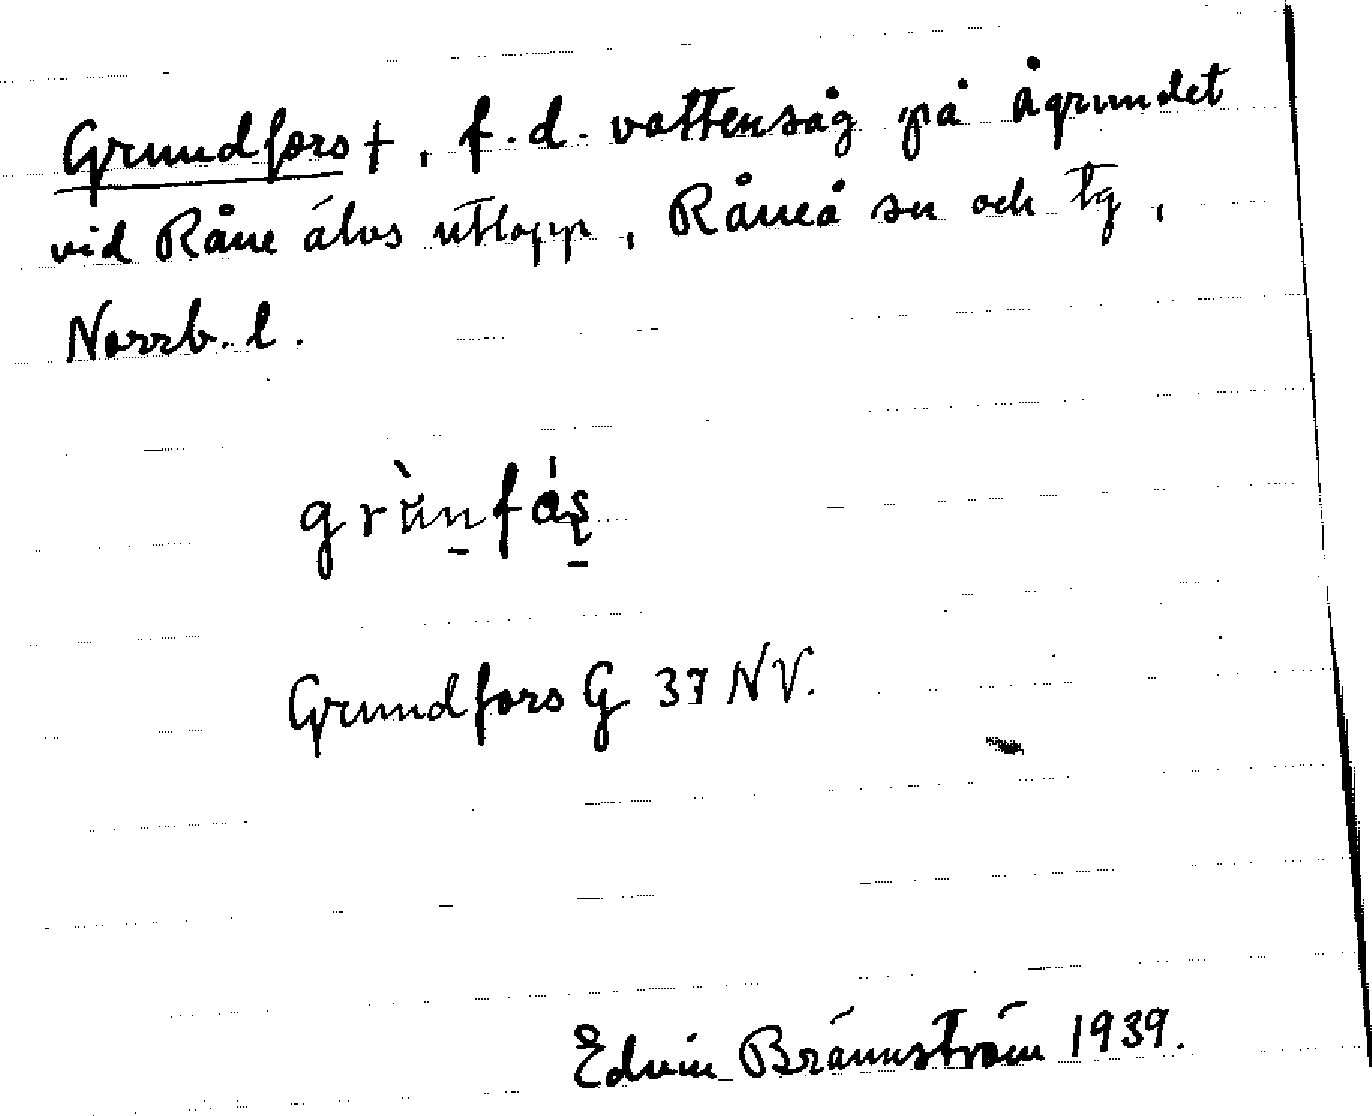 Grundfors †, f.d. vattensåg på Ågrundet
vid Råne älvs utlopp, Råneå sn och tg,
Norrb. l.
Grundfors G 37 NV.
Edvin Brännström 1939.